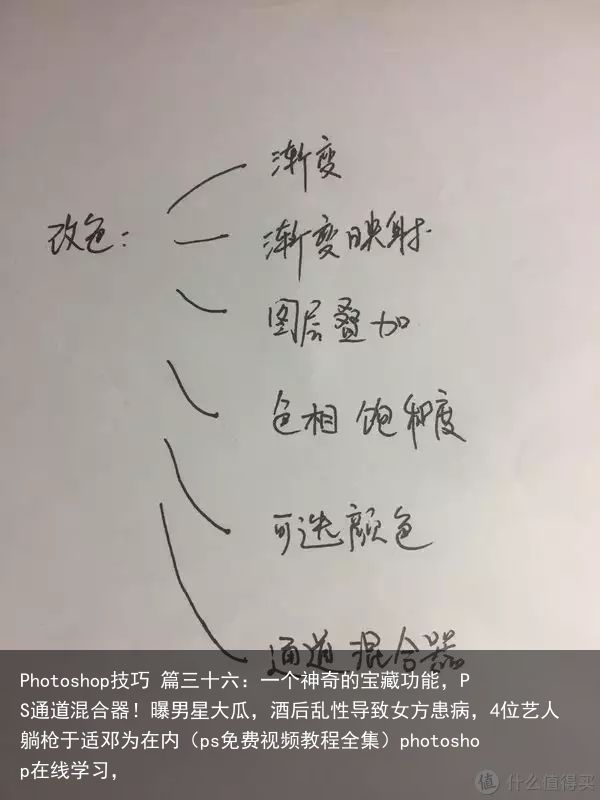 渐变
改色：
渐变映射
图层叠加
色相 饱和度
可选颜色
通道混合器
Photoshop技巧 篇三十六：一个神奇的宝藏功能，P
S通道混合器！曝男星大瓜，酒后乱性导致女方患病，4位艺人
躺枪于适邓为在内（ps免费视频教程全集）photosho
p在线学习，
值 什么值得买